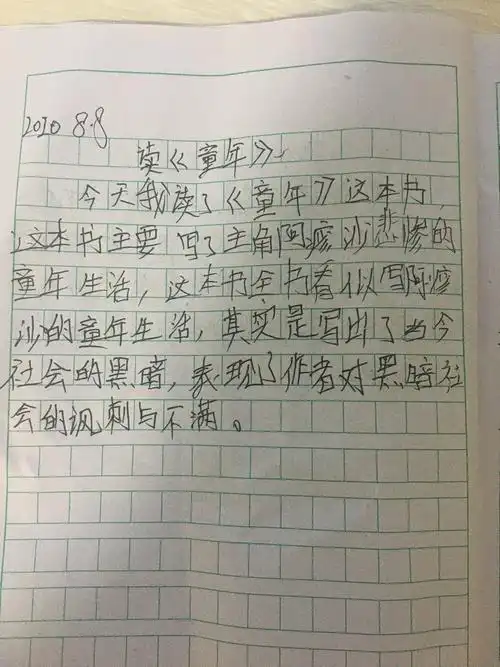 2020 8.8
读《童年》
今天我读了《童年》这本书,
这本书主要写了主角阿廖沙悲惨的
童年生活,这本书全书看似写阿廖
沙的童年生活,其实是写出了当今
社会的黑暗,表现了作者对黑暗社
会的讽刺与不满。